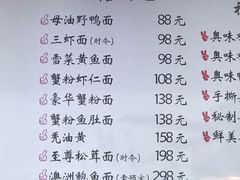 母油野鸭面 88元
三虾面(对今) 98元
雪菜黄鱼面 98元
蟹粉虾仁面 108元
豪华蟹粉面 138元
蟹粉鱼肚面 138元
秃油黄 158元
至尊松茸面(对今) 198元
澳洲鲍鱼面 298元
奥味
奥味
奥味
手撕
秘制
鲜美